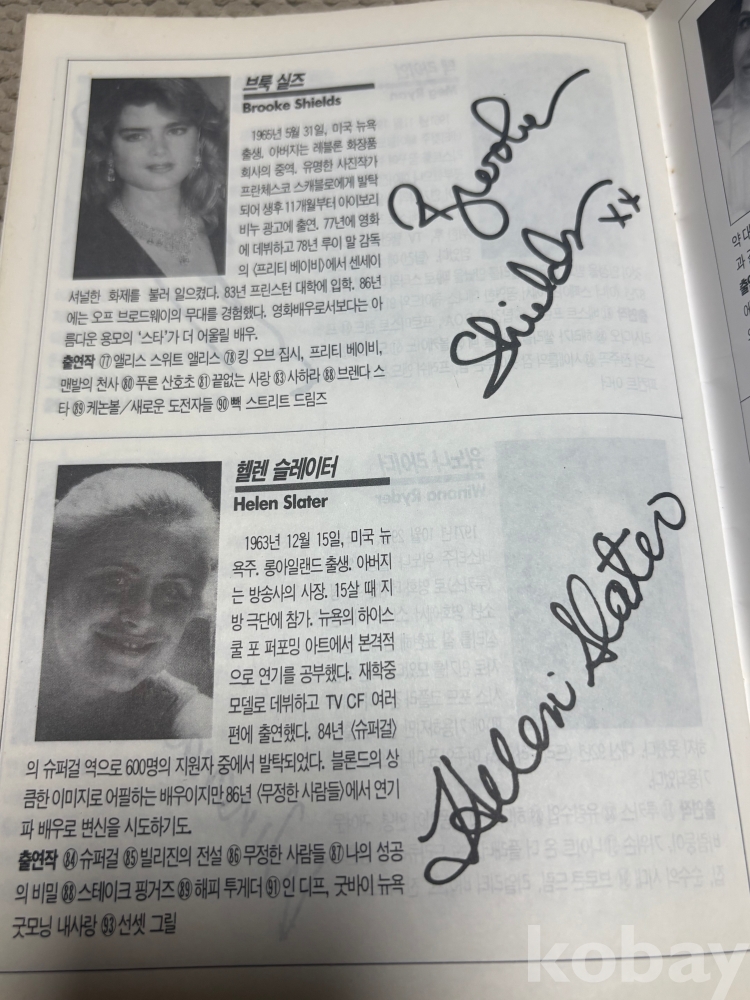 브룩 실즈
Brooke Shields
1965년 5월 31일, 미국 뉴욕
출생. 아버지는 레블론 화장품
회사의 중역. 유명한 사진작가
프란체스코 스캐블로에게 발탁
되어 생후 11개월부터 아이보리
비누 광고에 출연. 77년에 영화
에 데뷔하고 78년 루이 말 감독
의 〈프리티 베이비〉에서 센세이
셔널한 화제를 불러 일으켰다. 83년 프린스턴 대학에 입학. 86년
에는 오프 브로드웨이의 무대를 경험했다. 영화배우로서보다는 아
름다운 용모의 '스타'가 더 어울릴 배우.
출연작 ⑦⑦앨리스 스위트 앨리스 ⑦⑧킹 오브 집시, 프리티 베이비,
맨발의 천사 ⑧⓪푸른 산호초 ⑧①끝없는 사랑 ⑧③사하라 ⑧⑧브렌다 스
타 ⑧⑨케논볼/새로운 도전자들 ⑨⓪빽 스트리트 드림즈
Brooke
Shields xx
헬렌 슬레이터
Helen Slater
1963년 12월 15일, 미국 뉴
욕주. 롱아일랜드 출생. 아버지
는 방송사의 사장. 15살 때 지
방 극단에 참가. 뉴욕의 하이스
쿨 포 퍼포밍 아트에서 본격적
으로 연기를 공부했다. 재학중
모델로 데뷔하고 TV CF 여러
편에 출연했다. 84년 〈슈퍼걸〉
의 슈퍼걸 역으로 600명의 지원자 중에서 발탁되었다. 블론드의 상
큼한 이미지로 어필하는 배우이지만 86년 〈무정한 사람들〉에서 연기
파 배우로 변신을 시도하기도.
출연작 ⑧④슈퍼걸 ⑧⑤빌리진의 전설 ⑧⑥무정한 사람들 ⑧⑦나의 성공
의 비밀 ⑧⑧스테이크 핑거즈 ⑧⑨해피 투게더 ⑨①인 디프, 굿바이 뉴욕
굿모닝 내사랑 ⑨③선셋 그릴
Helen Slater
kobay